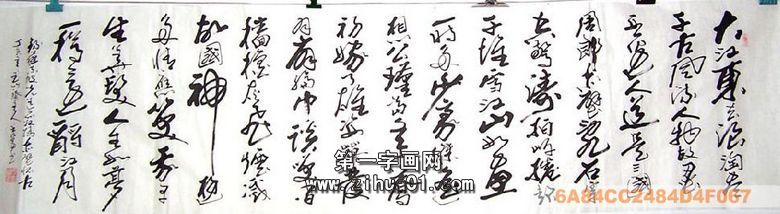 大江东去浪淘尽
千古风流人物故垒
西边人道是三国
周郎赤壁乱石穿
空惊涛拍岸卷起
千堆雪江山如画
一时多少豪杰遥
想公瑾当年小乔
初嫁了雄姿英发
羽扇纶巾谈笑间
樯橹灰飞烟灭
故国神游
多情应笑我早
生华发人生如梦
一樽还酹江月
第一字画网
www.zihua01.com
6A84CC2484D4F067